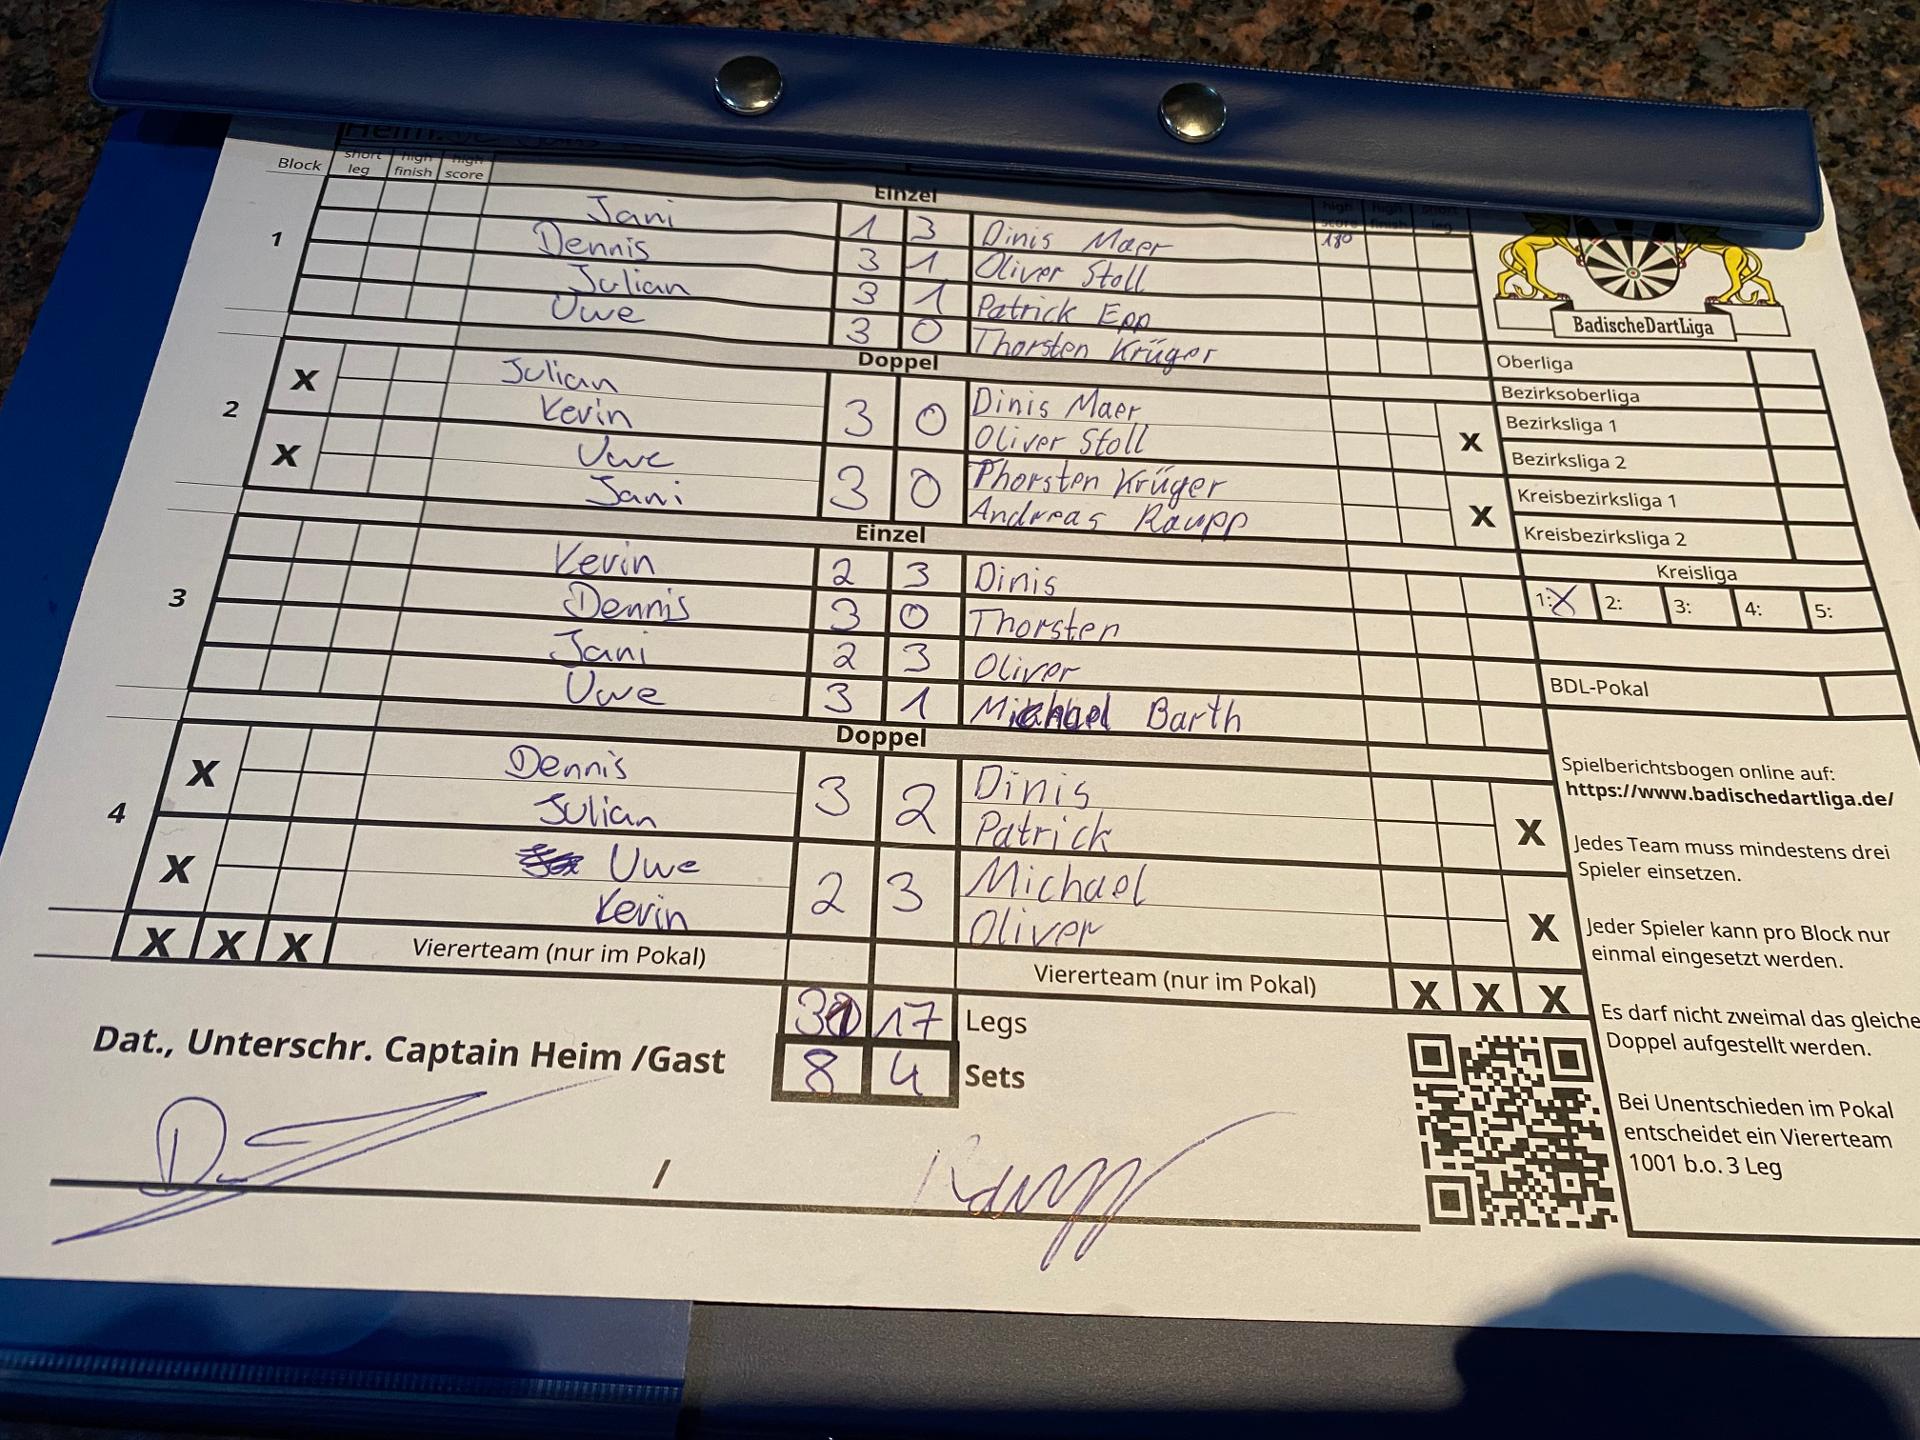 Heim:
Block short leg high finish high score
Einzel
high score high finish short leg
1
Jani 1 3 Dinis Maer 180
Dennis 3 1 Oliver Stoll
Julian 3 1 Patrick Epp
Uwe 3 0 Thorsten Krüger
Doppel
2
X Julian Kevin 3 0 Dinis Maer Oliver Stoll X
X Uwe Jani 3 0 Thorsten Krüger Andreas Raupp X
Einzel
3
Kevin 2 3 Dinis
Dennis 3 0 Thorsten
Jani 2 3 Oliver
Uwe 3 1 Michael Barth
Doppel
4
X Dennis Julian 3 2 Dinis Patrick X
X Uwe Kevin 2 3 Michael Oliver X
X X X Vierterteam (nur im Pokal) Vierterteam (nur im Pokal) X X X
17 Legs
8 4 Sets
Dat., Unterschr. Captain Heim /Gast
/
BadischeDartLiga
Oberliga
Bezirksoberliga
Bezirksliga 1
Bezirksliga 2
Kreisbezirksliga 1
Kreisbezirksliga 2
Kreisliga
1: X 2: 3: 4: 5:
BDL-Pokal
Spielberichtsbogen online auf:
https://www.badischedartliga.de/
Jedes Team muss mindestens drei
Spieler einsetzen.
Jeder Spieler kann pro Block nur
einmal eingesetzt werden.
Es darf nicht zweimal das gleiche
Doppel aufgestellt werden.
Bei Unentschieden im Pokal
entscheidet ein Viererteam
1001 b.o. 3 Leg